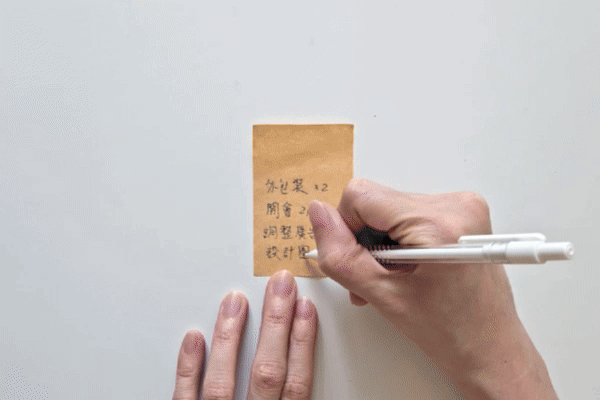 外包裝 x2
開會 2
調整廣告
設計圖